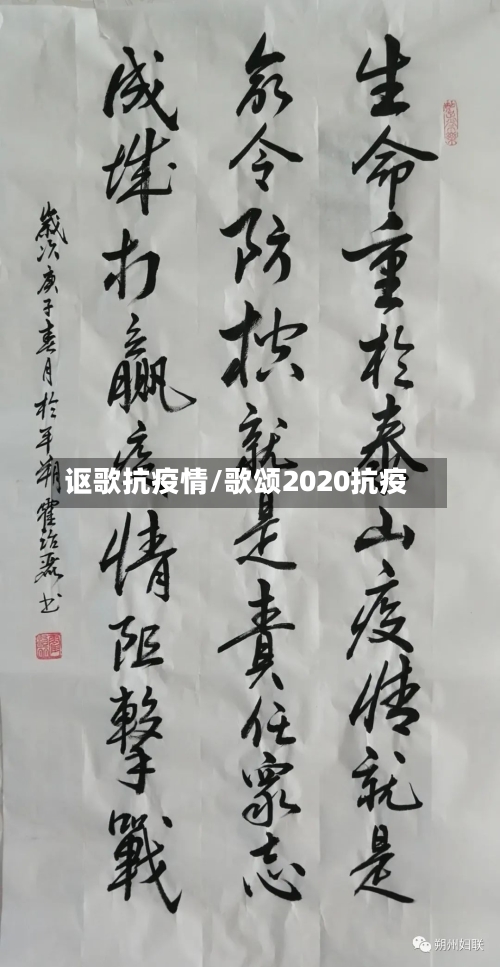 生命重於泰山疫情就是
命令防控就是責任眾志
成城打贏疫情阻擊戰
歲次庚子春月於平朔霍治磊书
讴歌抗疫情/歌颂2020抗疫
朔州妇联